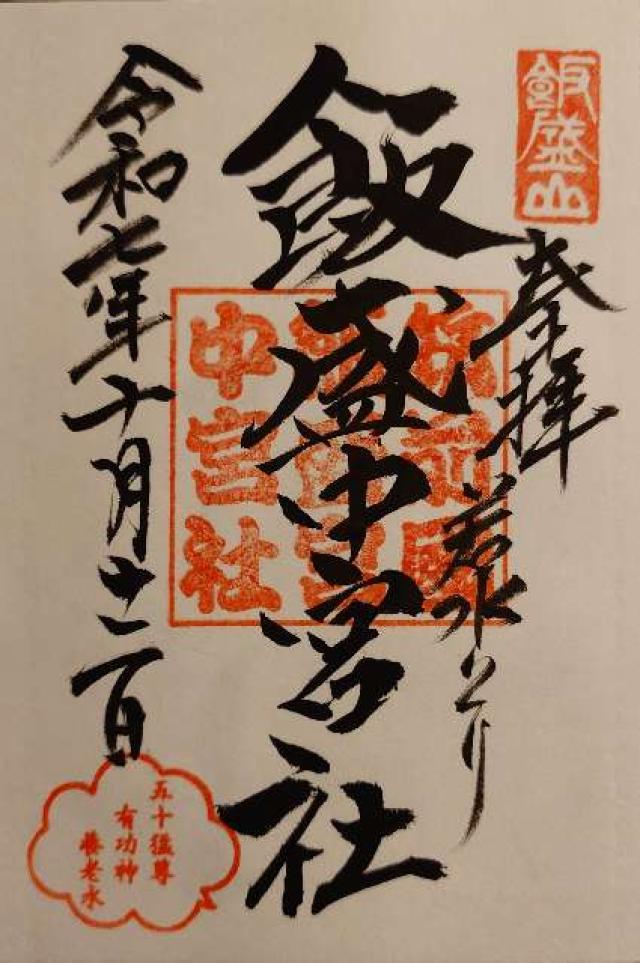 飯盛山
奉拝
若水とり
飯盛中宮社
令和七年十月十二日
中宮社
五十猛尊
有功神
養老水